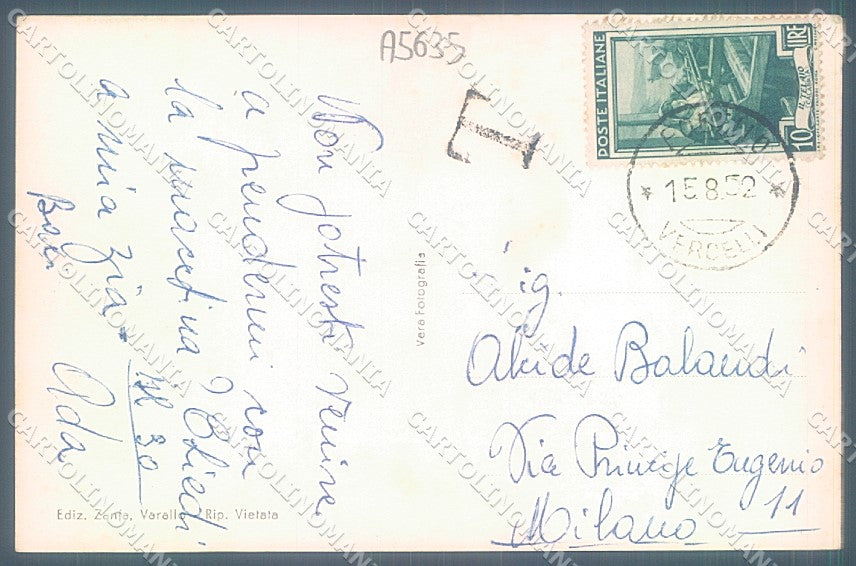 A5635
POSTE ITALIANE
LIRE
10
IL TELAIO
T
15.8.52
VERCELLI
Non potresti venire
a prendermi con
la macchina? Chiedi
a mia zia.
Il 30
Baci
Ada
Vera Fotografia
Sig.
Alcide Balandi
Via Principe Eugenio
11
Milano
Ediz. Zanfa, Varallo - Rip. Vietata
CARTOLINOMANIA